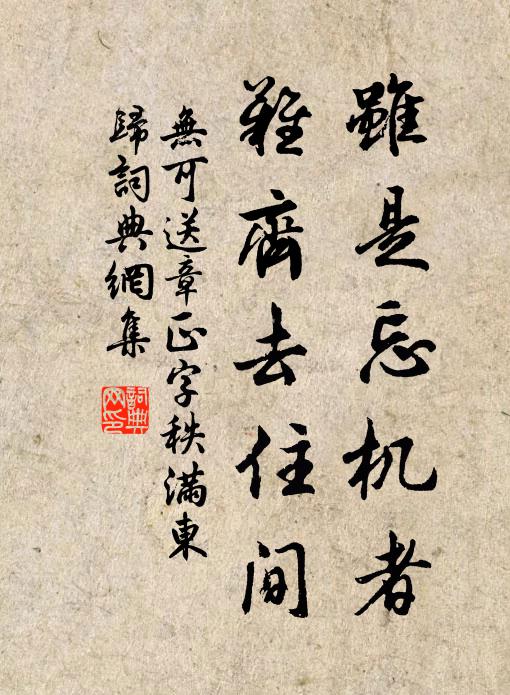 雖是忘机者
難齊去住間
無可送章正字秩滿東
歸詞典網集
詞典
网印